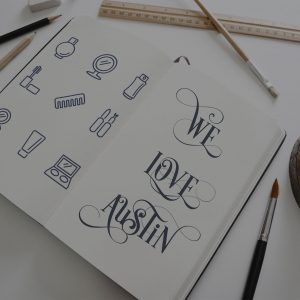 WE
LOVE
AUSTIN